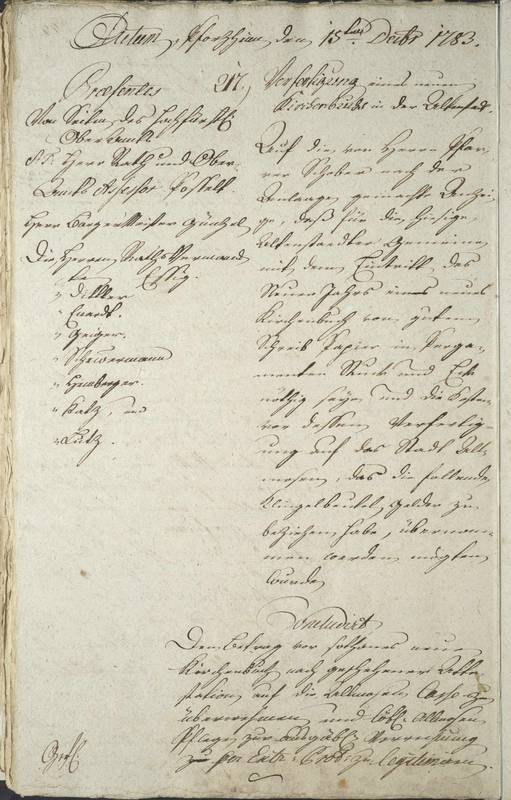 Actum, Pforzheim den 15ten Decbr 1783.
Praesentes
Von Seiten des Hochfürstl.
Ober Amts
S. T. Herr Rath und Ober
Amts Assessor Posselt
Herr Burgermeister Güntzel
Die Herren Raths Verwandten
Essig.
" Dittler
" Enardt.
" Geiger.
" Scheuermann
" Hamberger.
" Katz, und
" Lutz.
217.)
Verfertigung eines neuen
Kirchenbuchs in der Altenstadt.
Auf die von Herrn Pfar
rer Schober nach der
Anlage gemachte Anzei
ge, daß für die hiesige
Altenstaedter Gemeine
mit dem Eintritt des
Neuen Jahrs ein neues
Kirchenbuch von gutem
Schreib Papier in Perga
menten Ruck und Eck
nöthig seye, und die Kosten
vor dessen Verfertig
ung auf das Stadt All
mosen, das die fallende
Klingelbeutel Gelder zu
beziehen habe, übernom
men werden mögten
wurde
Concludirt
Den Betrag vor sothanes neue
Kirchenbuch nach geschehener Atte
station auf die Allmosen Casse zu
übernehmen und löbl. Allmosen
Pflege zur Ausgabs Verrechnung
per Extr. Prot. zu legitimiren.